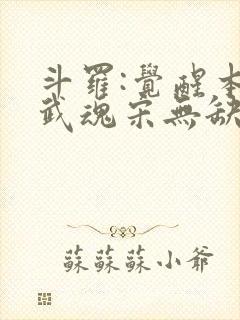 斗羅:覺醒本
武魂宋無缺
蘇蘇蘇小爺